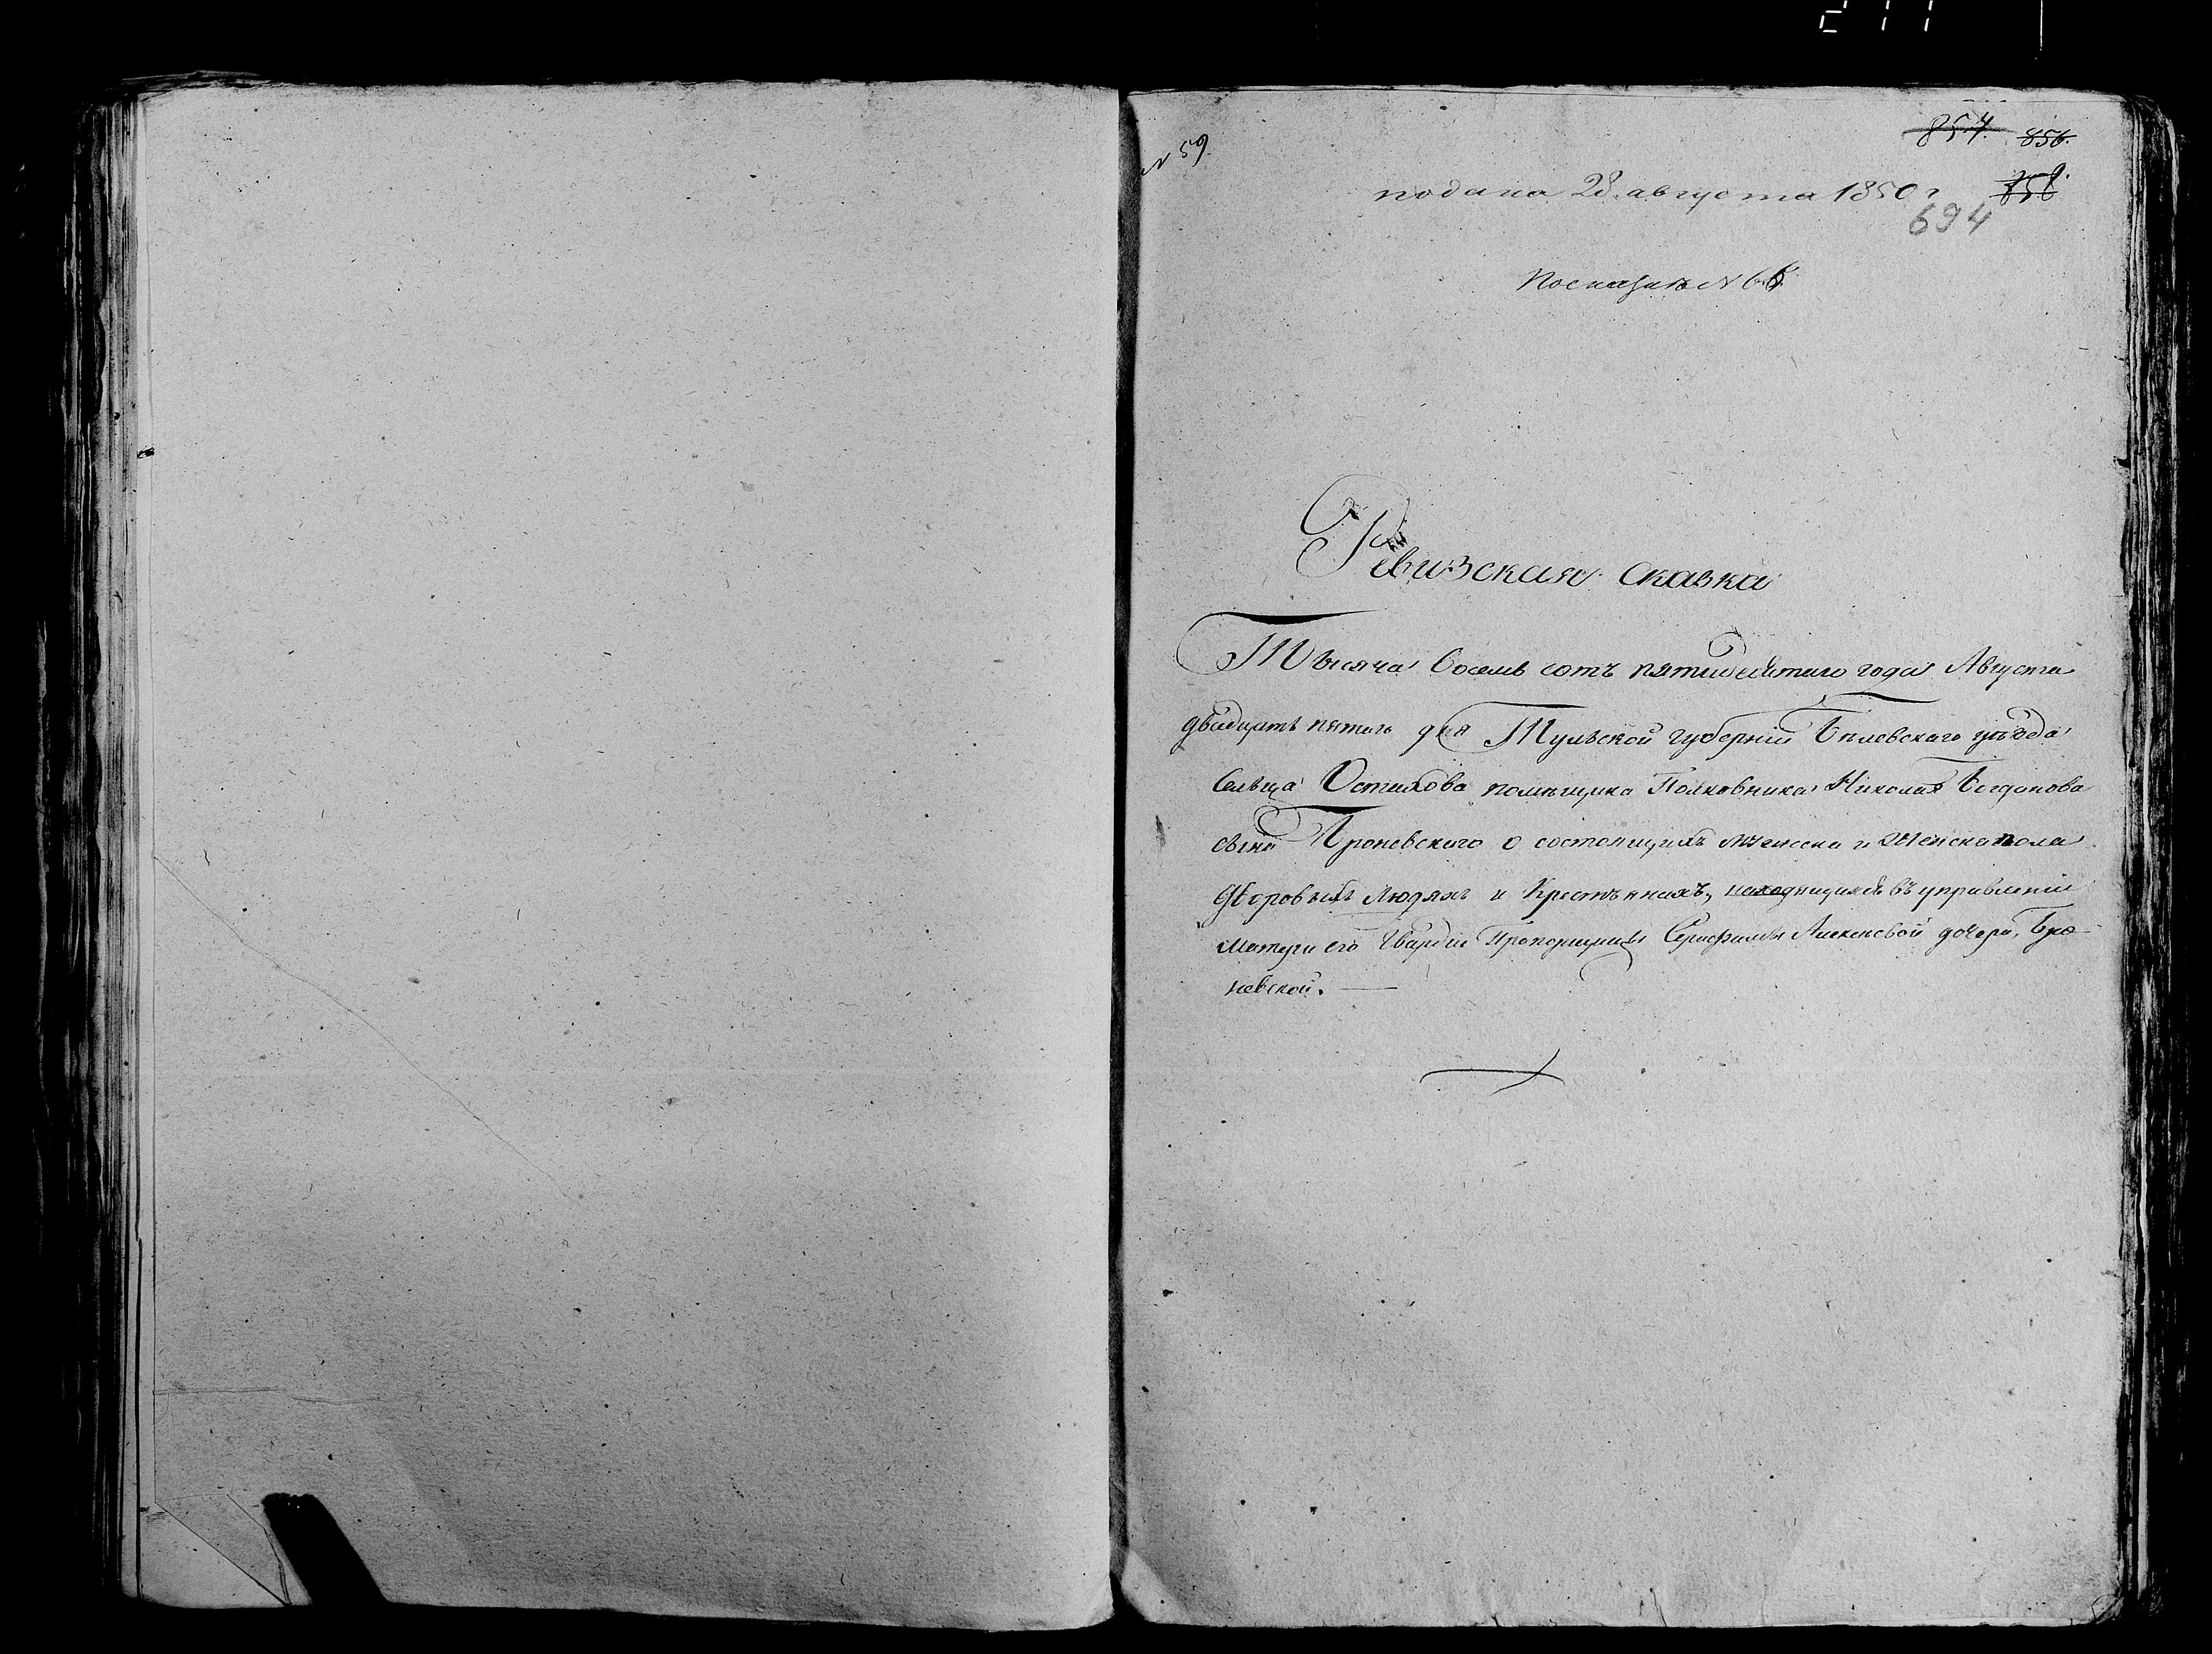 211
№ 59.
854. 856.
подана 28 августа 1850 г 858
694
По сказкѣ № 66
Ревизская сказка
Тысяча восемь сотъ пятидесятаго года Августа
двадцать пятаго дня Тульской губерніи Бѣлевскаго уѣзда
Сельца помѣщика Полковника Николая Богданова
сына Броневскаго о состоящихъ мужеска и женска пола
дворовыхъ людяхъ и крестьянахъ, находящихся въ управленіи
матери его Гвардіи Прапорщицы Серафимы Алексѣевой дочери, Бро-
невской. —